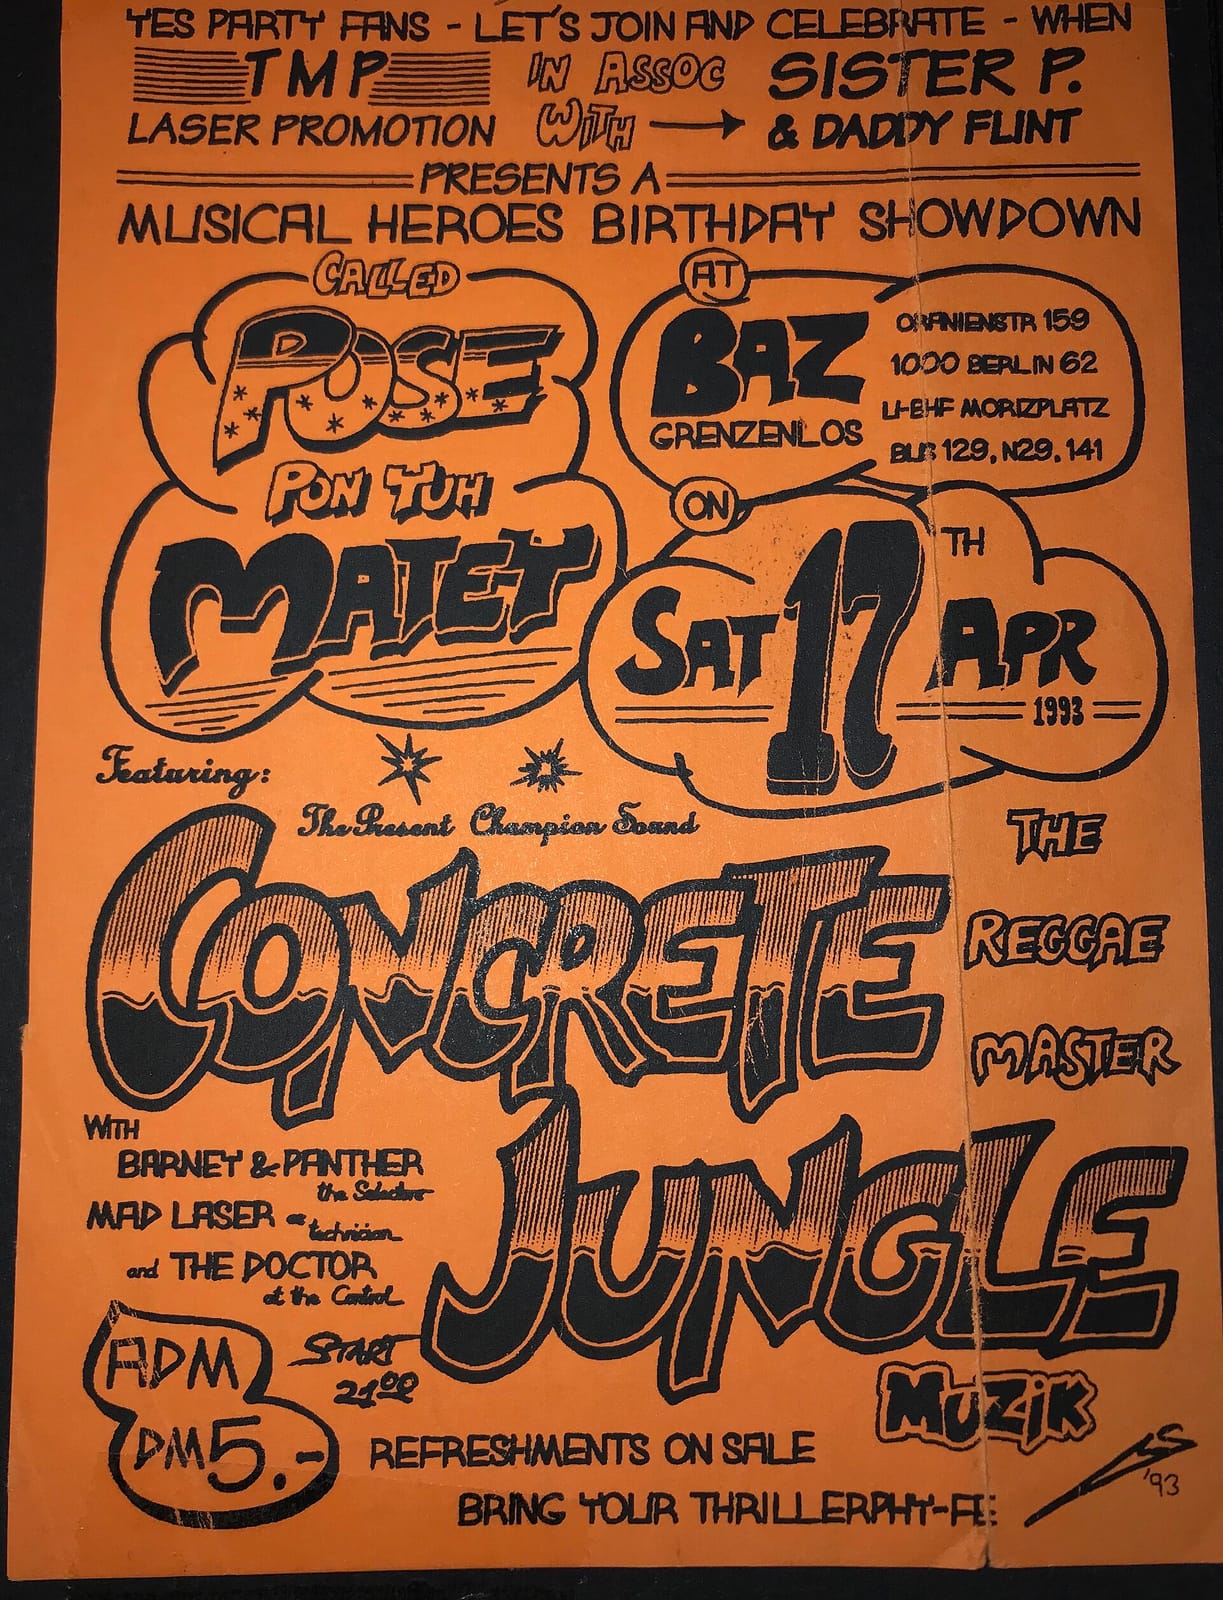 YES PARTY FANS - LET'S JOIN AND CELEBRATE - WHEN
TMP IN ASSOC SISTER P.
LASER PROMOTION WITH → & DADDY FLINT
PRESENTS A
MUSICAL HEROES BIRTHDAY SHOWDOWN
CALLED
POSE
PON YUH
MATEY
AT
BAZ
GRENZENLOS
ORANIENSTR 159
1000 BERLIN 62
U-BHF MORIZPLATZ
BUS 129, N29, 141
ON
SAT 17TH APR
1993
Featuring:
The Present Champion Sound
CONCRETE
JUNGLE
THE
REGGAE
MASTER
MUZIK
WITH
BARNEY & PANTHER
the Selectors
MAD LASER as technician
and THE DOCTOR
at the Control
ADM
DM5.-
START
21⁰⁰
REFRESHMENTS ON SALE
BRING YOUR THRILLERPHY-FE
'93